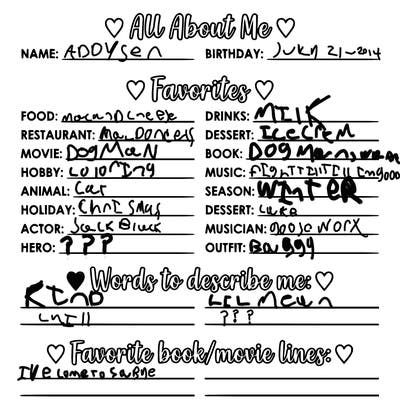 All About Me
NAME: ADDYSen BIRTHDAY: JUKN 21-2014
Favorites
FOOD: macanDcheese DRINKS: MIlK
RESTAURANT: Ma.Donells DESSERT: IceCreM
MOVIE: DOgMaN BOOK: DOgMan
HOBBY: COlORINg MUSIC:
ANIMAL: Car SEASON: WINTER
HOLIDAY: ChrISMas DESSERT: Cake
ACTOR: JackBlack MUSICIAN: gooseworx
HERO: ? ? ? OUTFIT: Baggy
Words to describe me:
KIND LIL Mean
ChIll ???
Favorite book/movie lines:
I've come to